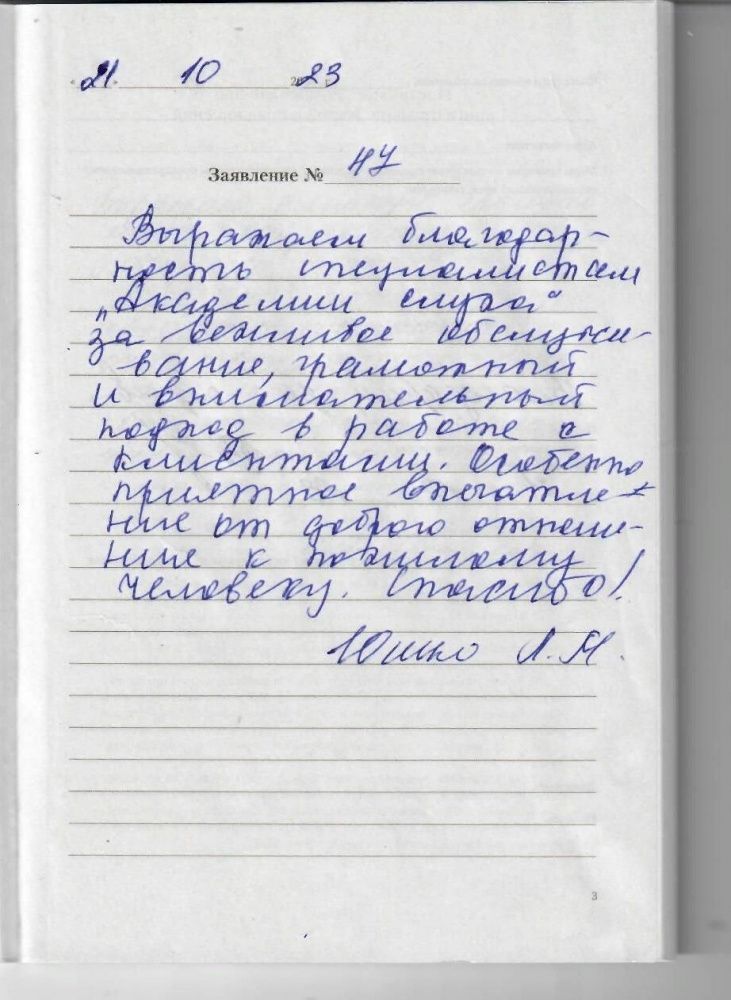 21. 10 2023
Заявление № 47
Выражаем благодар-
ность специалистам
„Академии слуха"
за вежливое обслужи-
вание, грамотный
и внимательный
подход в работе с
клиентами. Особенно
приятное впечатле-
ние от доброго отноше-
ние к пожилому
человеку. Спасибо!
Юшко Л. М.
3